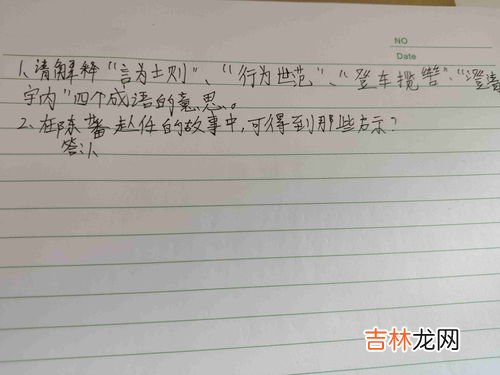 NO
Date
1、请解释"言为士则"、"行为世范"、"登车揽辔"、"澄清
宇内"四个成语的意思。
2、在陈蕃赴任的故事中,可得到那些启示?
答:
吉林龙网